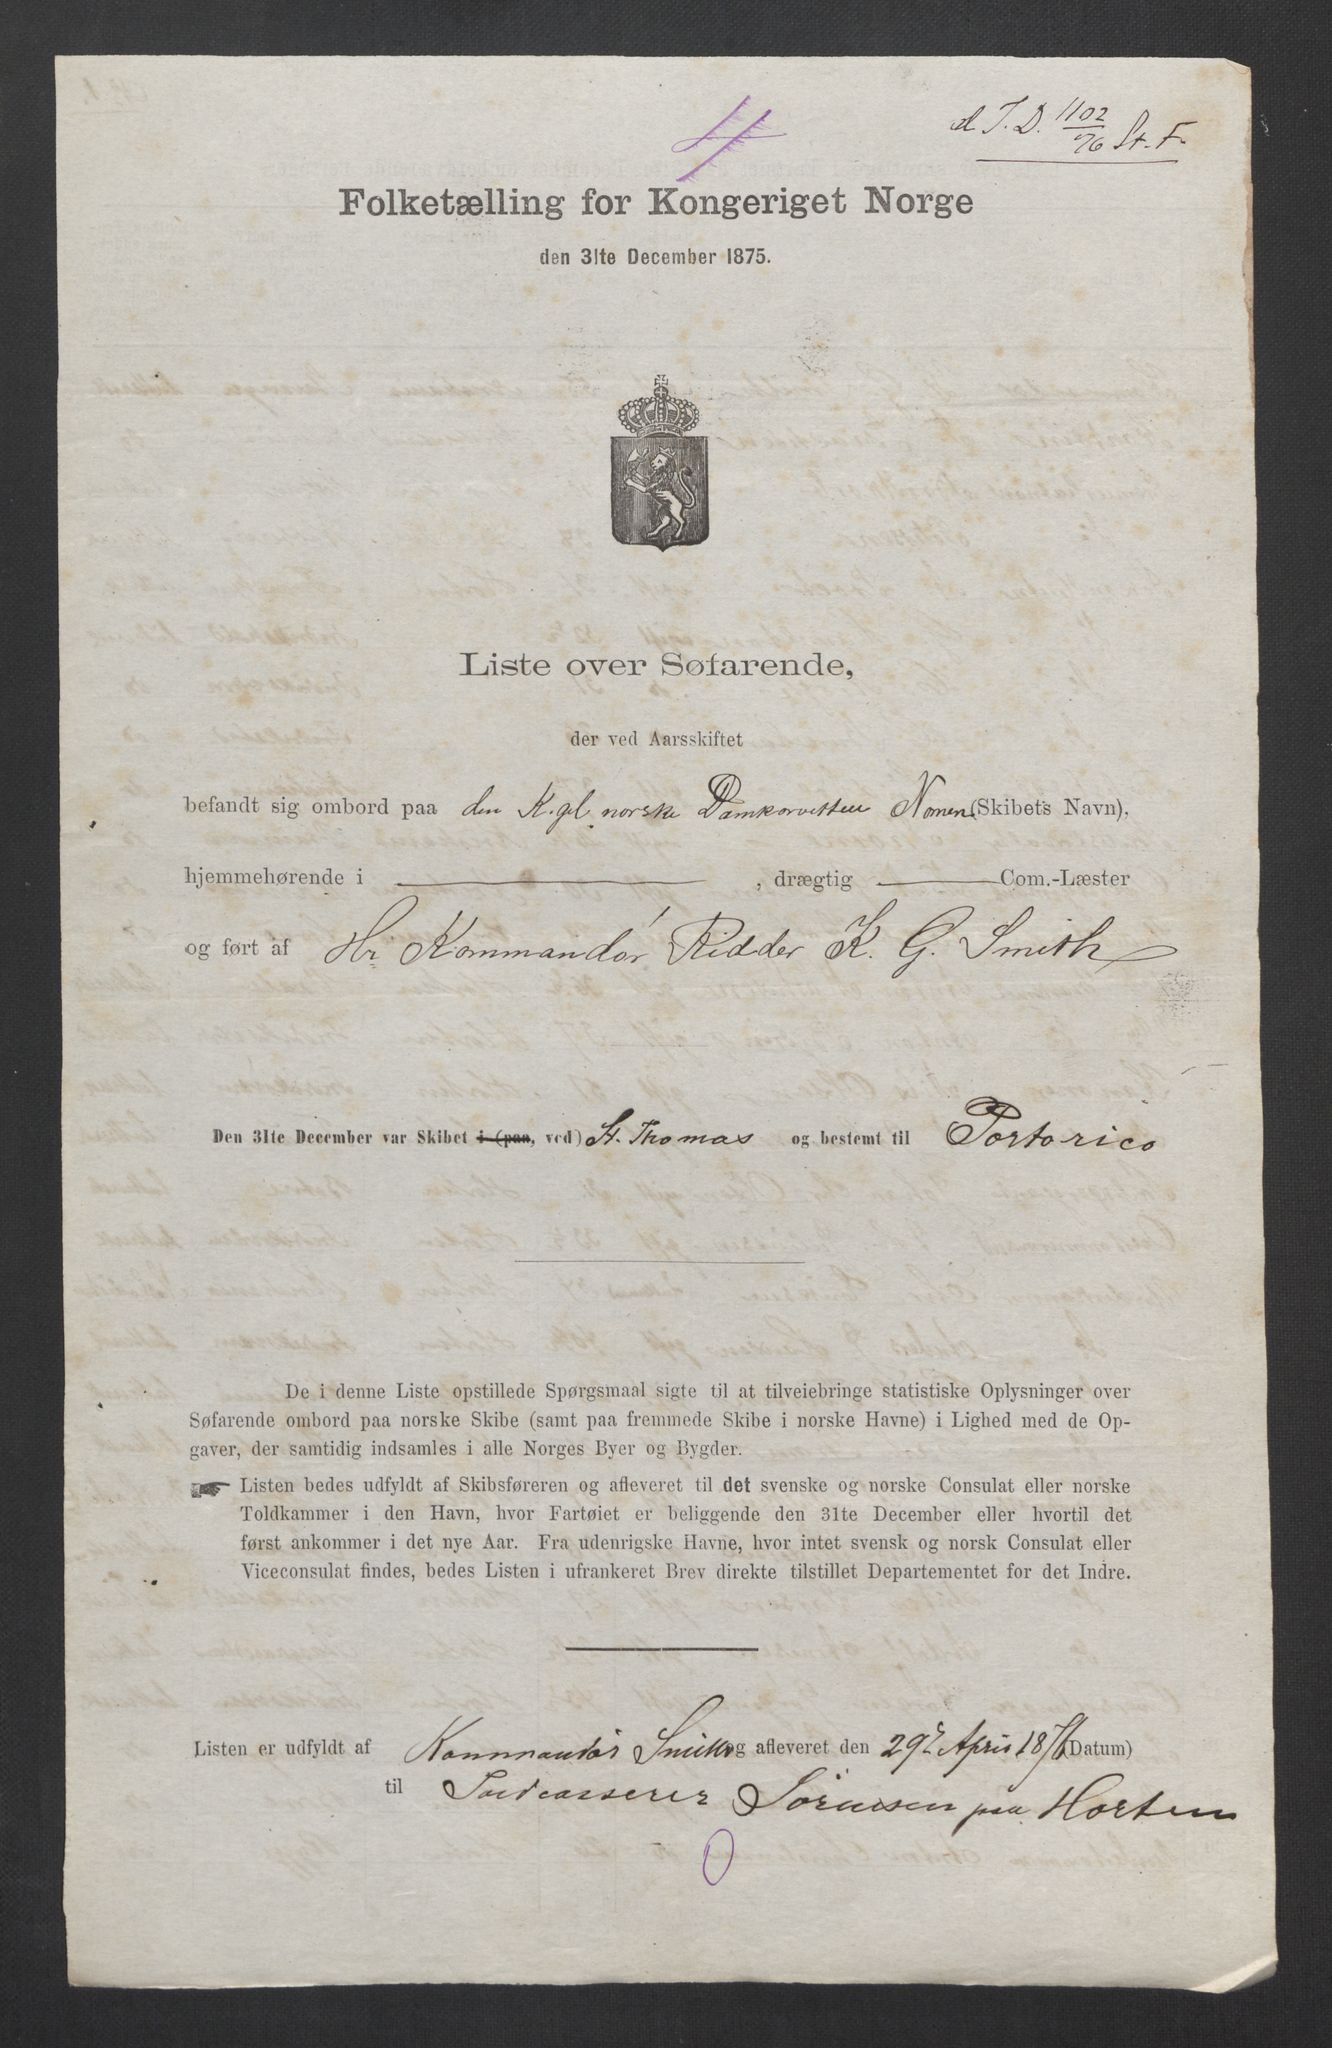 d I. D. 1102/76 St. F.
Folketælling for Kongeriget Norge
den 31te December 1875.
Liste over Søfarende,
der ved Aarsskiftet
befandt sig ombord paa den Kgl. norske Damkorvetten Nornen (Skibets Navn),
hjemmehørende i , drægtig Com.-Læster
og ført af Hr Kommandór Ridder K. G. Smith
Den 31te December var Skibet i (paa, ved) St. Thomas og bestemt til Portorico
De i denne Liste opstillede Spørgsmaal sigte til at tilveiebringe statistiske Oplysninger over
Søfarende ombord paa norske Skibe (samt paa fremmede Skibe i norske Havne) i Lighed med de Op-
gaver, der samtidig indsamles i alle Norges Byer og Bygder.
Listen bedes udfyldt af Skibsføreren og afleveret til det svenske og norske Consulat eller norske
Toldkammer i den Havn, hvor Fartøiet er beliggende den 31te December eller hvortil det
først ankommer i det nye Aar. Fra udenrigske Havne, hvor intet svensk og norsk Consulat eller
Viceconsulat findes, bedes Listen i ufrankeret Brev direkte tilstillet Departementet for det Indre.
Listen er udfyldt af Kommandór Smith og afleveret den 29de April 1876 (Datum)
til Toldcasserer Sörensen paa Horten